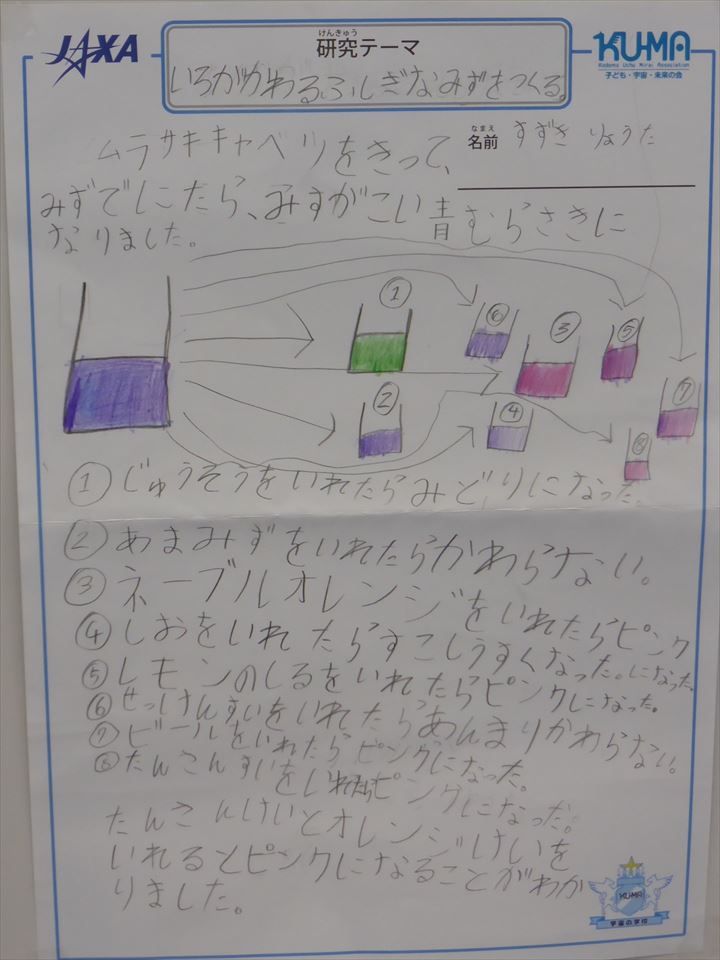 JAXA
けんきゅう
研究テーマ
いろがかわるふしぎなみずをつくる。
KU-MA
Kodomo Uchu Mirai Association
子ども・宇宙・未来の会
なまえ
名前 すずき りょうた
ムラサキキャベツをきって、
みずでしこたら、みずがこい青むらさきに
なりました。
①
⑥
③
⑤
②
④
⑦
⑧
①じゅうそうをいれたらみどりになった。
②あまみずをいれたらかわらない。
③ネーブルオレンジをいれたらピンク
になった。
④しおをいれたらすこしうすくなった。
⑤レモンのしるをいれたらピンクになった。
⑥せっけんすいをいれたらあんまりかわらない。
⑦ビールをいれたらピンクになった。
⑧たんさんすいをいれたらピンクになった。
たんさんけいとオレンジけいを
いれるとピンクになることがわか
りました。
KU-MA
宇宙の学校